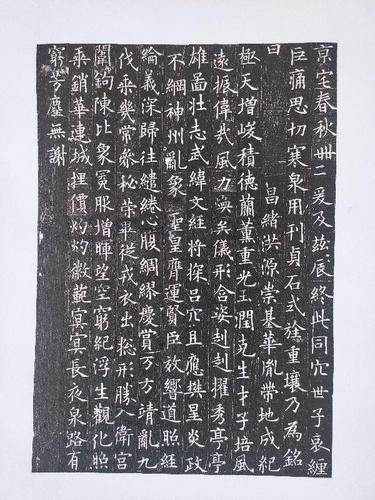 京宅春秋卌二爰及兹辰終此同穴世子哀纏
巨痛思切寒泉用刊貞石式旌重壤乃為銘
曰 昌緒洪源崇基華胤帶地成紀
極天增峻積德蘭薰重光玉潤克生才子培風
遠振偉哉風力美矣儀形含姿赳赳擢秀亭亭
雄啚壯志武緯文經将探吕穴且應樊星炎政
不綱神州亂象 聖皇膺運賢臣效響道照經
綸義深歸往繾綣心腹綢繆慶賞万方靖亂九
伐乘幾常參秘策亟從戎衣出捴形勝入衛宮
闈鉤陳比象冕服增暉望空窮紀浮生觀化照
乘銷華連城埋價灼灼徽範冥冥長夜泉路有
窮芳塵無謝